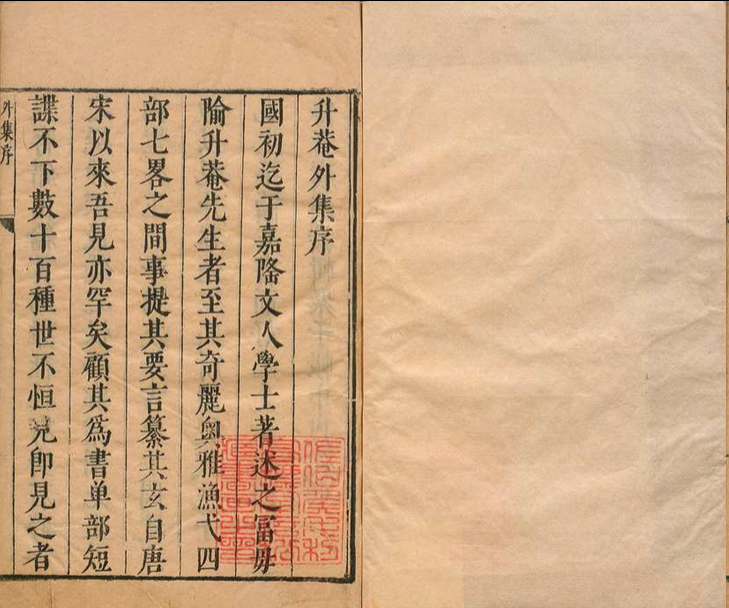 升菴外集序
國初迄于嘉隆文人學士著述之富毋
隃升菴先生者至其奇麗奧雅漁弋四
部七畧之間事提其要言纂其玄自唐
宋以來吾見亦罕矣顧其爲書单部短
諜不下數十百種世不恒見卽見之者
外集序